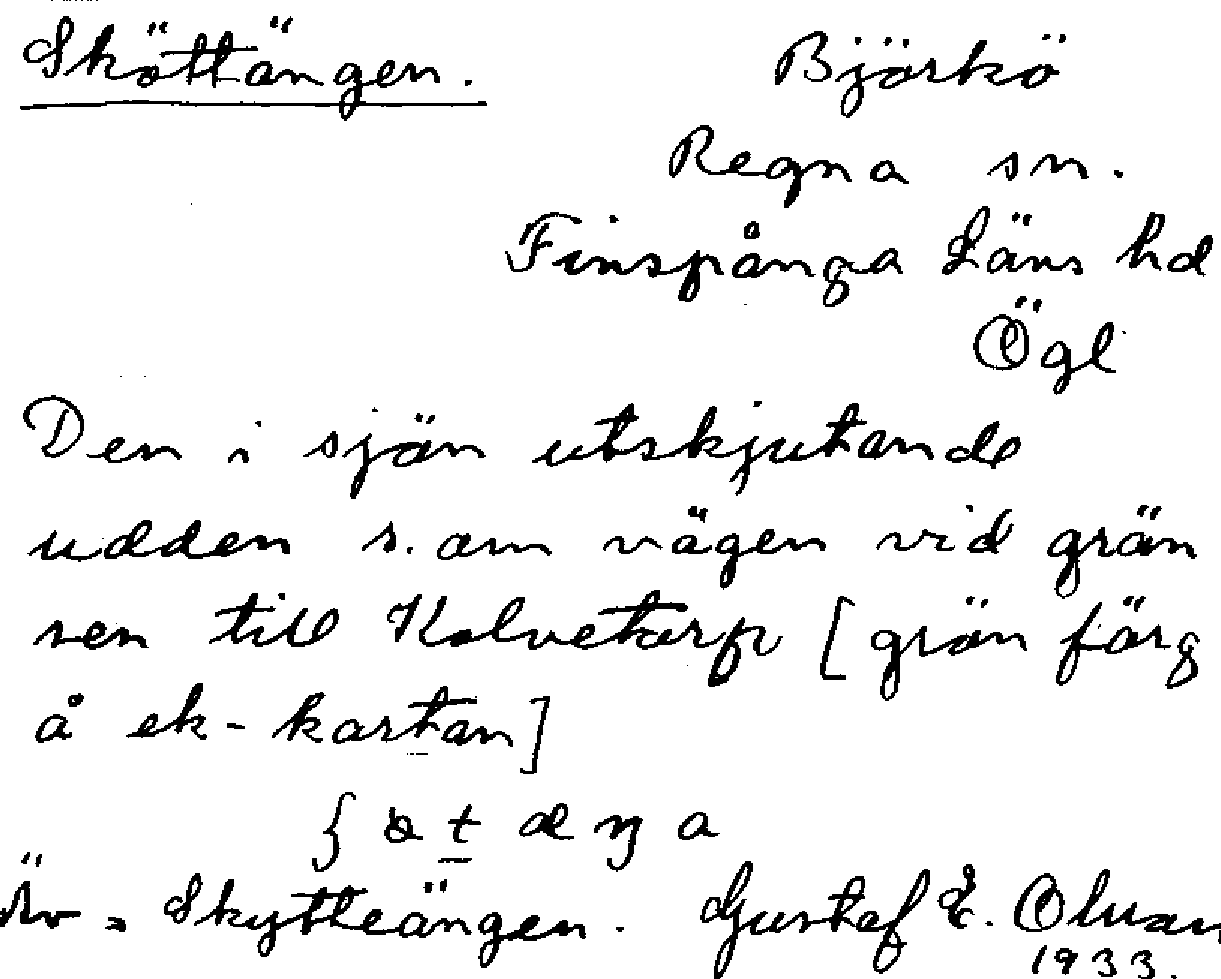 Sköttängen. Björkö
Regna sn.
Finspånga Läns hd
Ögl
Den i sjön utskjutande
udden s. om vägen vid grän
sen till Kolvetorp [grön färg
å ek-kartan]
Skytteängen. Gustaf E. Olsson
1933.